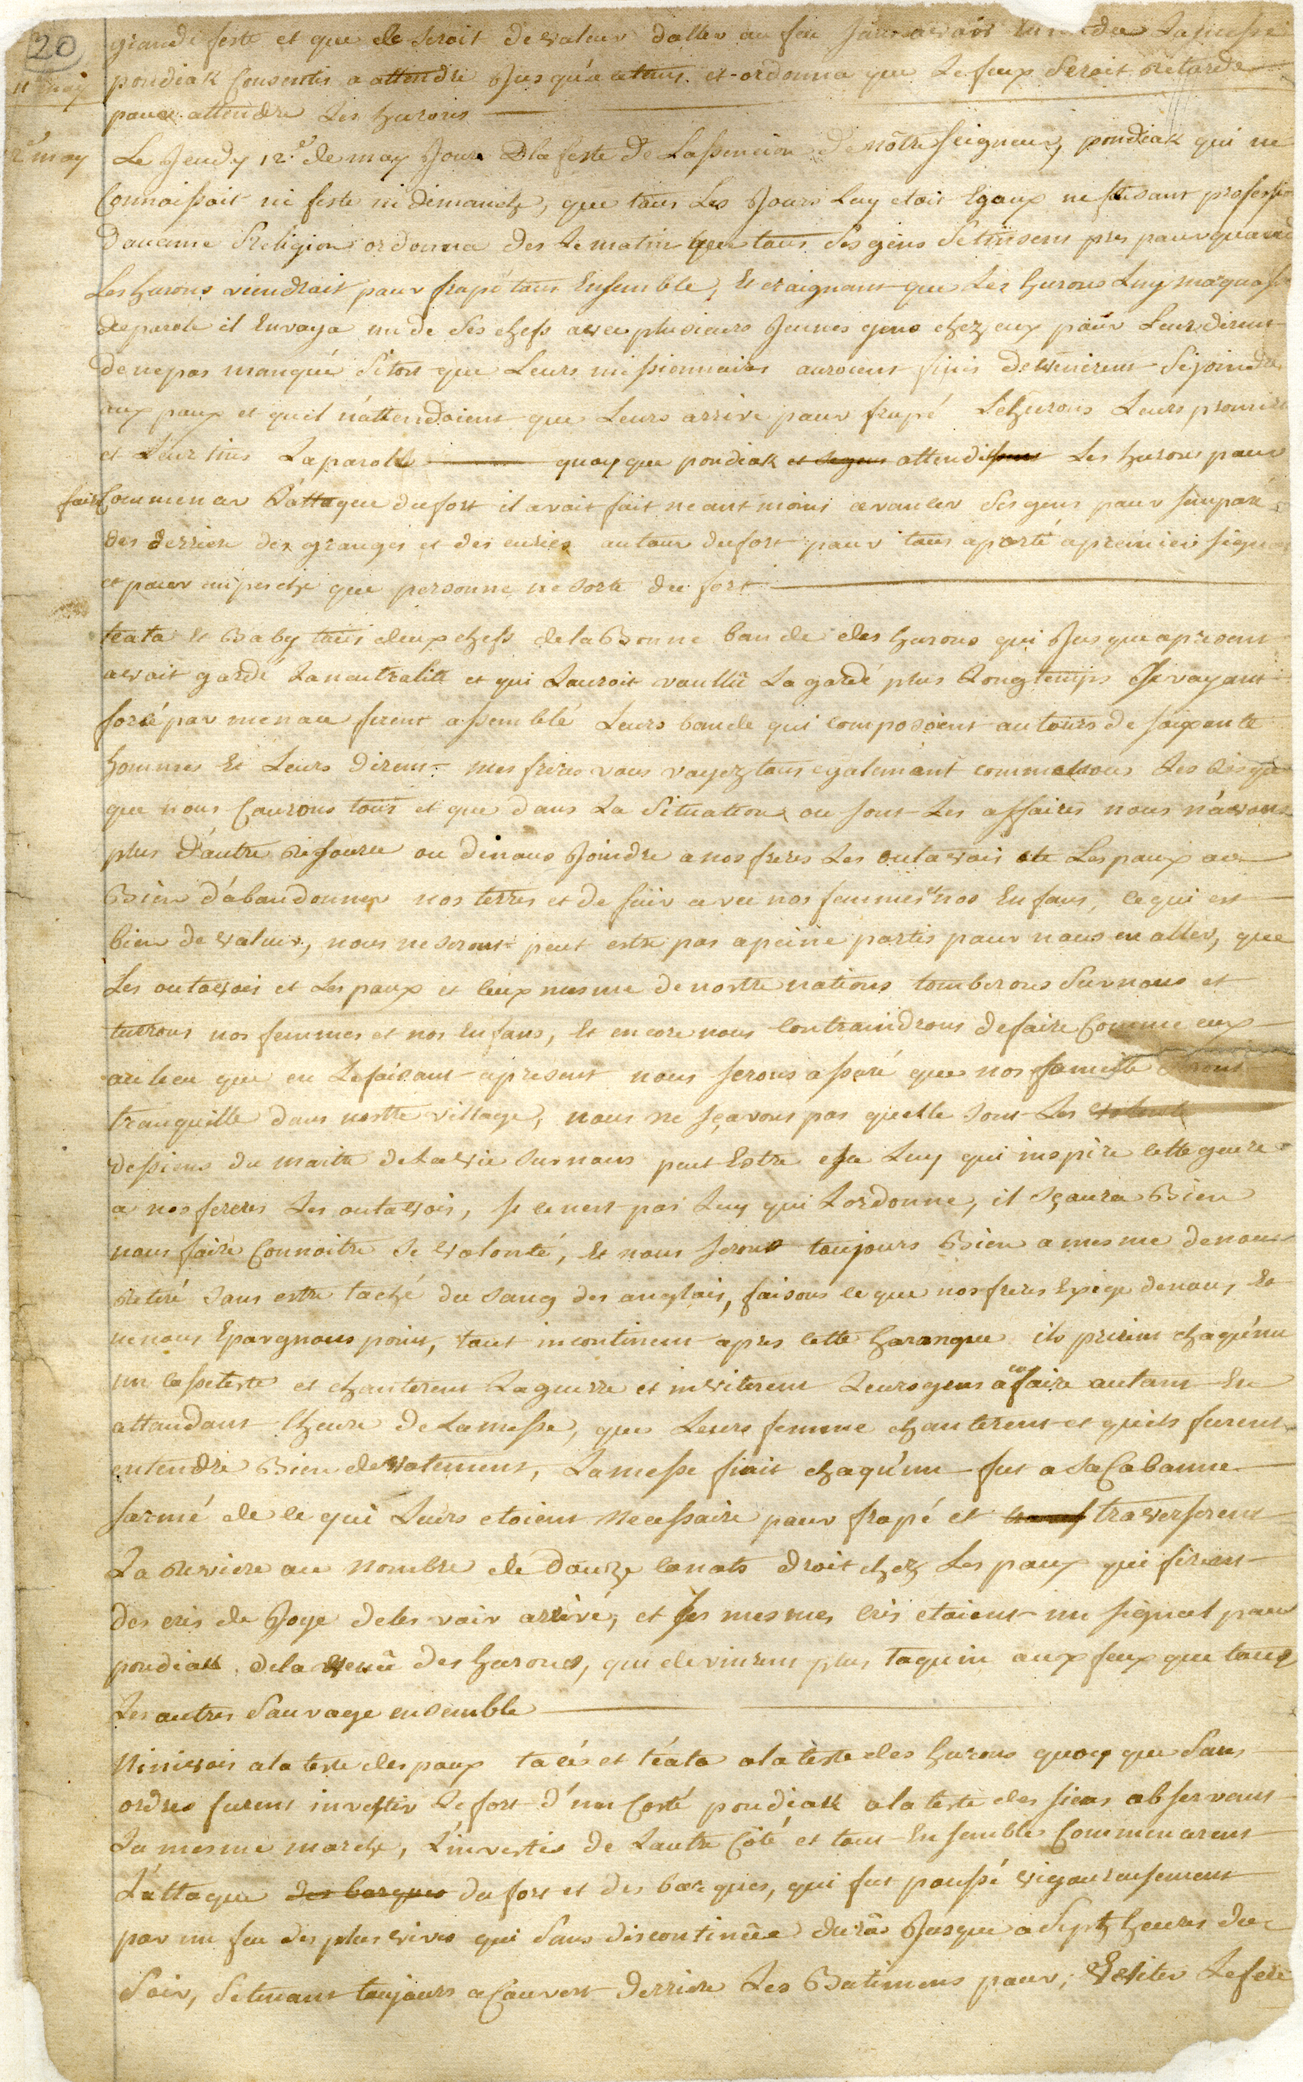 20
grande feste et que ce seroit de valeur daller au feu sans avoir entendue La messe
11 may
pondiak Consentis a attendre Jusqu'a ce tems et ordonna que Le feux Seroit retardé
pour attendre Les hurons
12e may
Le Jeudy 12.e de may Jour De la feste De Lassencion De nôtre seigneur, pondiak qui ne
Connoissoit ni feste ni dimanche, que tous Les Jours Luy etoit Egaux ne faisant profession
d'aucune Religion ordonna des Le matin que tous Ses gens Se tinsent pres pour quand
Les hurons viendroit pour frapé tous Ensemble, Et craignant que Les hurons Luy manquasse
de parole il Envoya un de Ses chefs avec plusieurs Jeunes gens chez eux pour Leur dirent
de ne pas manqué Sitost que Leurs missionnaires auroient finis de venirent Se joindre
aux poux et qu'il n'attendoient que Leurs arrivé pour frapé Le hurons Leurs promire
et Leur tins La parole quoy que pondiak et ses gens attendissent Les hurons pour
faire Commencer L'attaque du fort il avoit fait neantmoins avancer Ses gens pour Semparé
des derriere des granges et des ecuries autour du fort pour tous aporté a premier signal
et pour empeche que personne ne sorte du fort
teata Et Baby tous deux chefs de la Bonne bande des hurons qui Jusque apresent
avoit gardé La neutralité et qui Lauroit voullû La gardé plus Longtemps Se voyant
forsé par menace firent assemblé Leurs bande qui composoient autours de soixante
hommes Et Leurs Dirent mes freres vous voyez tous egalemant comme nous Les Risque
que nous Courons tous et que dans La Situation ou sont Les affaires nous n'avons
plus d'autre resource ou de nous Joindre a nos freres Les outavois et Les poux ou
Bien d'abandonner nos terres et de fuir avec nos femmes et nos Enfans, ce qui est
bien de valeur, nous ne serons peut estre pas a peine partis pour nous en aller, que
Les outavois et Les poux et ceux mesme de nostre nations tomberons Sur nous et
turrons nos femmes et nos Enfans, Et encore nous Contraindrons de faire Comme eux
au lieu que en Le faisant apresent nous serons assuré que nos famille Seront
tranquille dans nostre village, nous ne sçavons pas quelle sont Les volonté
dessiens du maitre de La vie Sur nous peut Estre esse Luy qui inspire cette guerre
a nos freres Les outavois, Si ce nest pas Luy qui Lordonne, il sçaura Bien
nous faire Connoitre Se volonté, Et nous serons toujours Bien a mesme de nous
retiré sans estre taché du sang des anglais, faisons ce que nos freres Exige de nous, Et
ne nous Epargnons point, tout incontinent apres cette harangue ils prirent chaqu'un
un cassetete et chanterent La guerre et inviterent Leurs gens a en faire autant En
attandant Lheure de La messe, que Leurs femme chanterent et qu'ils furent
entendre Bien devotement, La messe finit chaqu'un fut a Sa Cabanne
sarmé de ce qui Leurs etoient necessaire pour frapé et traverserent
La Reviere au nombre de Douze canots droit chez Les poux qui firent
des cris de Joye de les voir arrivé, et Ses mesmes cris etoient un signal pour
pondiak de la venû des hurons, qui devinrent plus taquin aux feux que tous
Les autres Sauvage ensemble
Ninivois a la teste des poux takés et téata a la teste des hurons quoy que Sans
ordres furent investir Le fort d'un Costé pondiak a la teste des siens observant
La mesme marche, L'investis de Lautre Côté et tous Ensemble Commencerent
L'attaque des barques du fort et des barques, qui fut poussé vigoureusement
par un feu des plus vives qui Sans discontinûe durâ Jusque a Sept heures du
Soir, Se tenans toujours a Couvert Derriere Les Batimens pour, Eviter Le feu